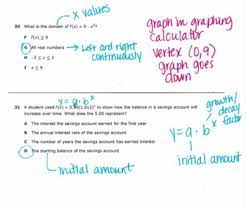 x values
30 What is the domain of f(x) = 9 - x²?
F f(x) ≥ 9
G All real numbers
H -3 ≤ x ≤ 3
J x ≤ 9
→ Left and right
continuously
graph in graphing
calculator
vertex (0,9)
graph goes
down
y = a · bˣ
31 A student used f(x) = 5.00(1.012)ˣ to show how the balance in a savings account will
increase over time. What does the 5.00 represent?
A The interest the savings account earned for the first year
B The annual interest rate of the savings account
C The number of years the savings account has earned interest
D The starting balance of the savings account
initial amount
growth/
decay
factor
y = a · bˣ
initial amount